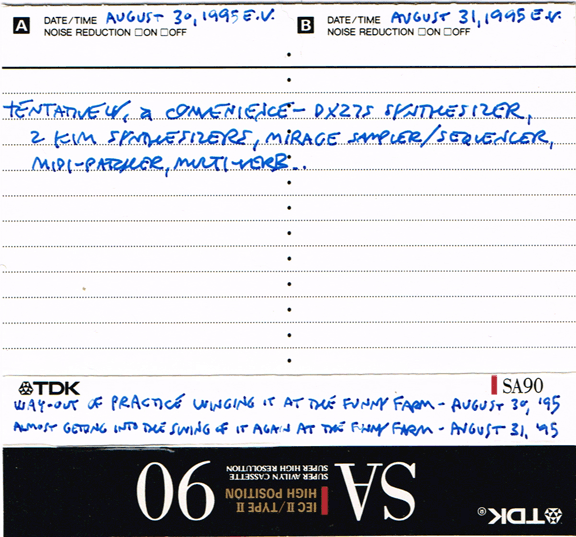 A DATE/TIME AUGUST 30, 1995 E.V.
NOISE REDUCTION □ON □OFF
B DATE/TIME AUGUST 31, 1995 E.V.
NOISE REDUCTION □ON □OFF
TENTATIVELY, a CONVENIENCE - DX27S SYNTHESIZER,
2 KIM SYNTHESIZERS, MIRAGE SAMPLER/SEQUENCER,
MIDI-PATCHER, MULTI-VERB..
TDK SA90
WAY-OUT OF PRACTICE WINGING IT AT THE FUNNY FARM - AUGUST 30, '95
ALMOST GETTING INTO THE SWING OF IT AGAIN AT THE FUNNY FARM - AUGUST 31, '95
TDK®
SA 90
IEC II/TYPE II
HIGH POSITION
SUPER AVILYN CASSETTE
SUPER HIGH RESOLUTION